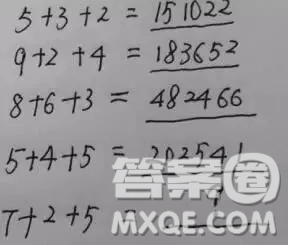 5+3+2 = 151022
9+2+4 = 183652
8+6+3 = 482466
5+4+5 = 202541
7+2+5 = ?
答案圈
MXQE.COM